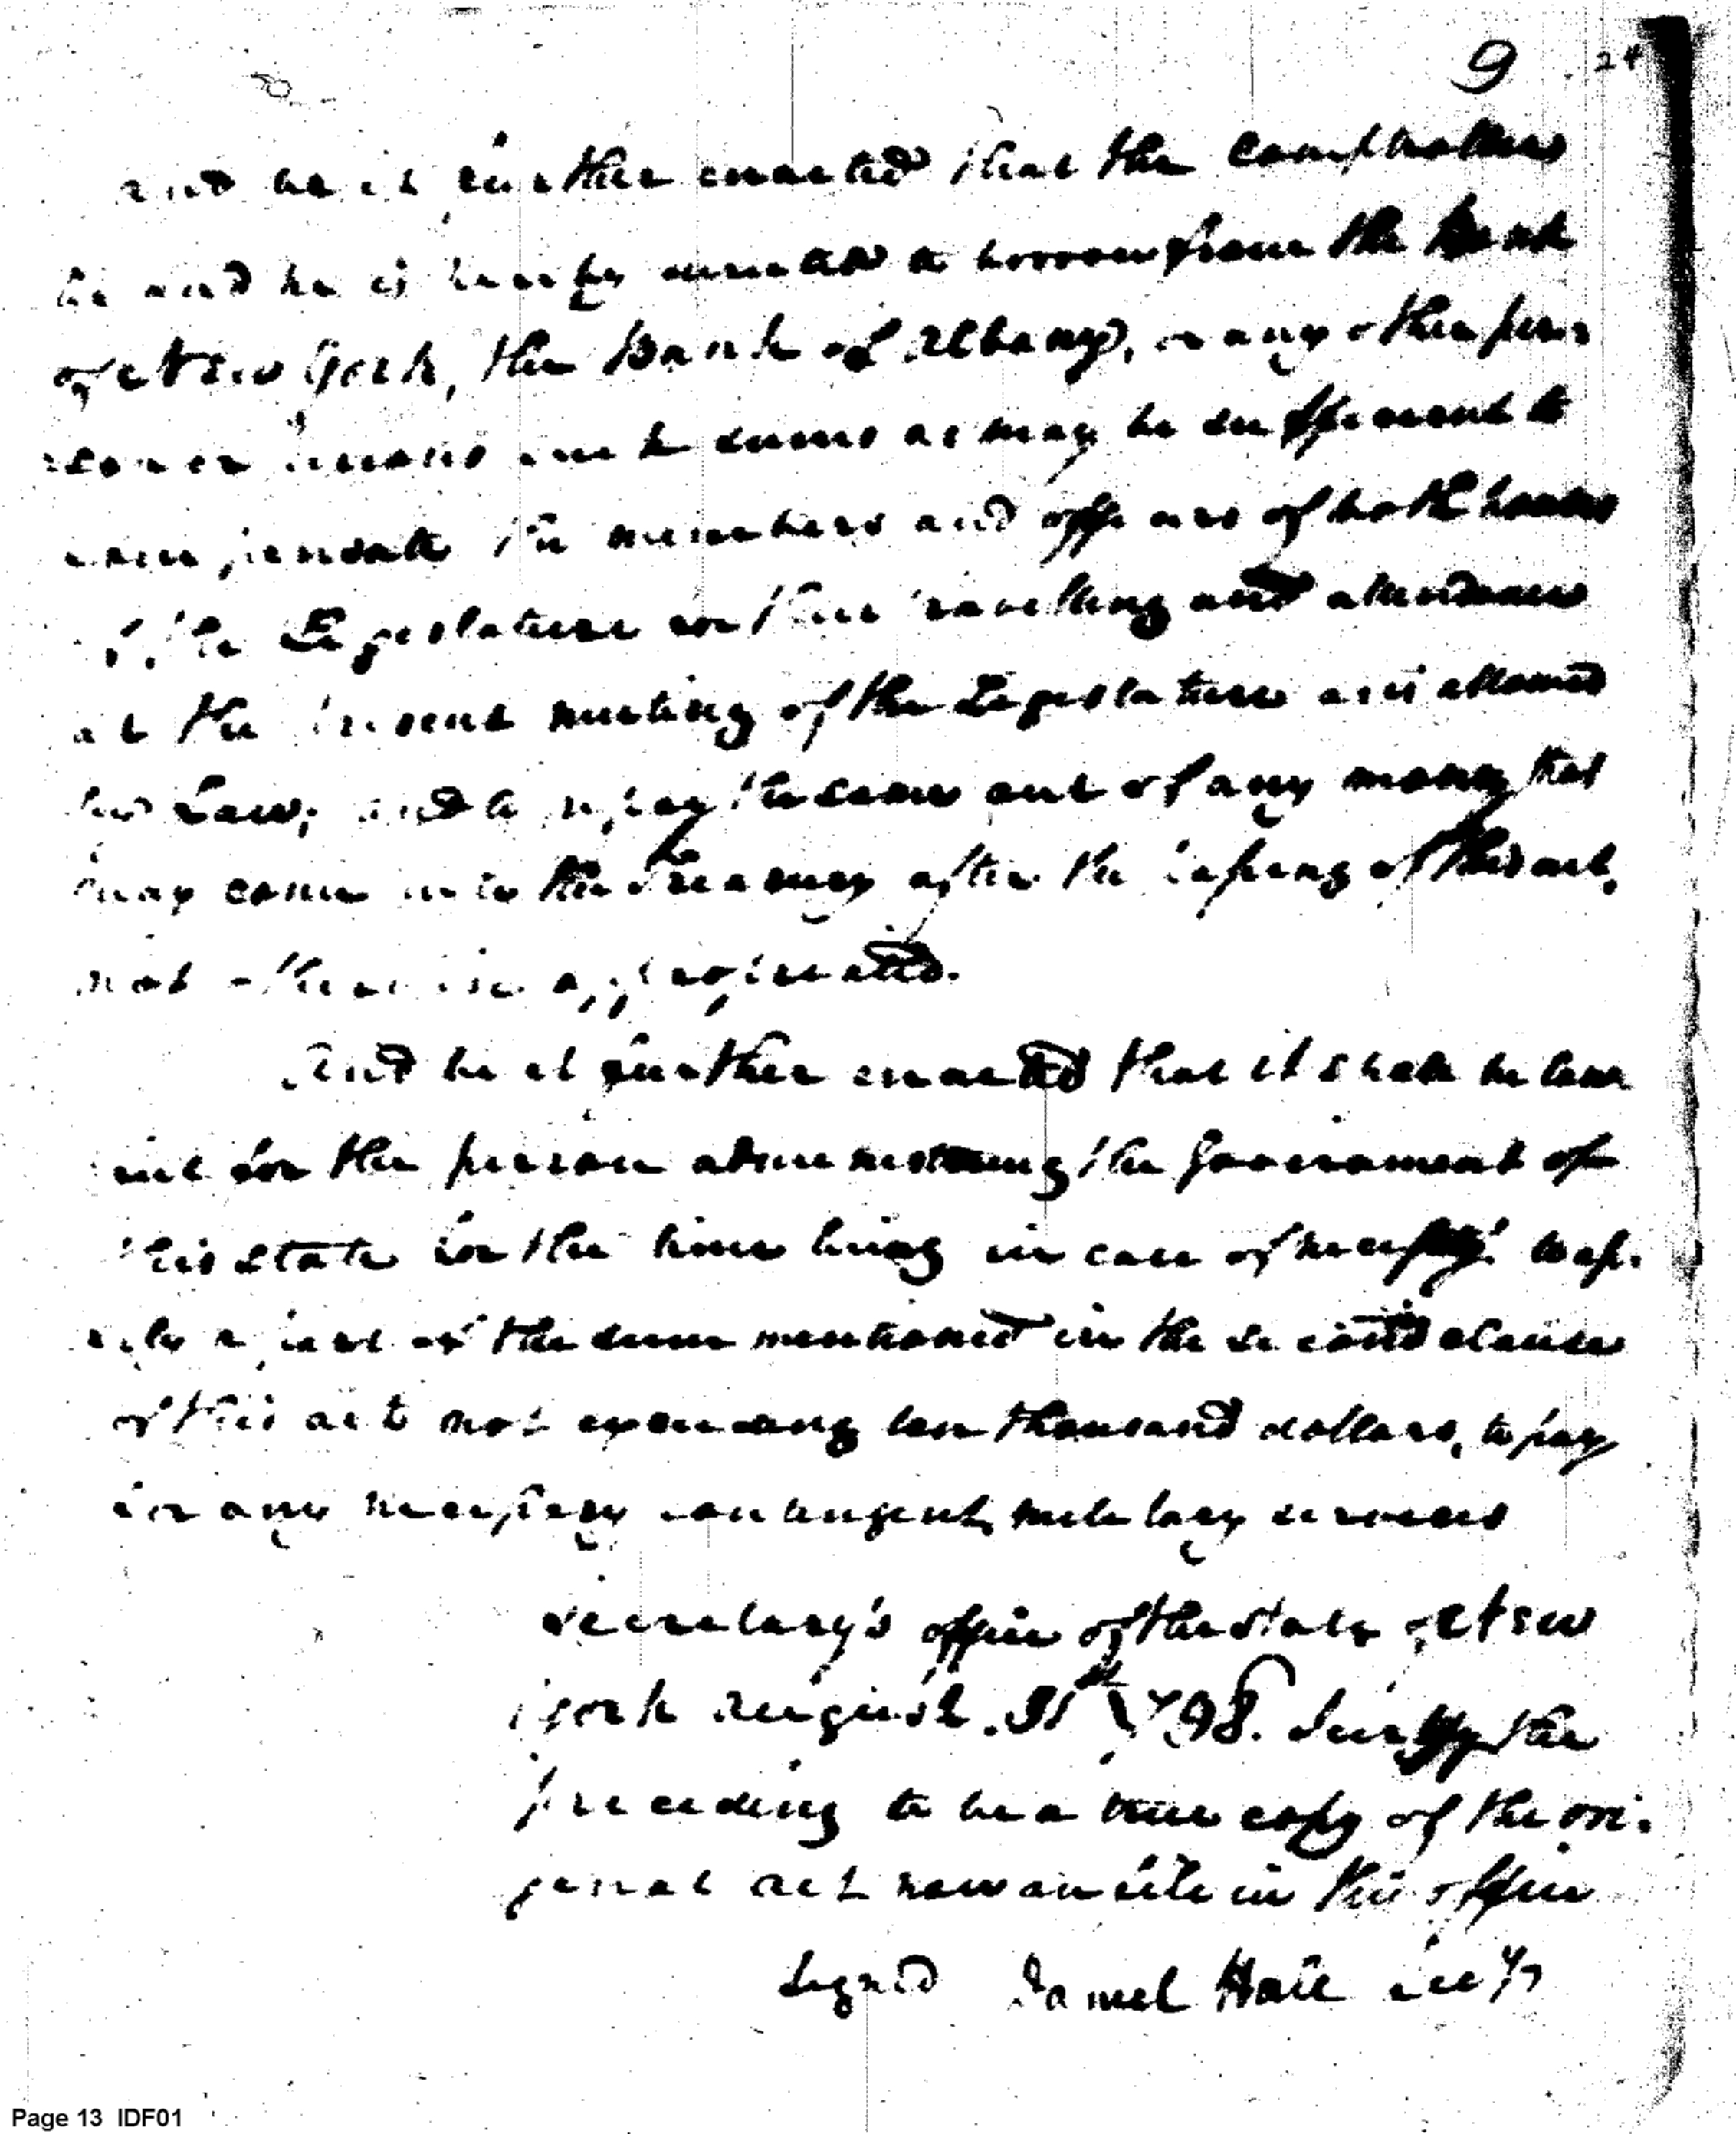 9
and be it further enacted that the comptroller
be and he is hereby directed to borrow from the Bank
of New York, the Bank of Albany, or any other per-
son or persons such sums as may be sufficient to
compensate the members and officers of both houses
of the Legislature for their travelling and attendance
at the present meeting of the Legislature as is allowed
by Law; and to repay the same out of any money that
may come into the Treasury after the passing of this act,
not otherwise appropriated.
And be it further enacted that it shall be law
full for the person administering the Government of
this state for the time being in case of necessity to ap-
ply a part of the sum mentioned in the second clause
of this act not exceeding ten thousand dollars, to pay
for any necessary contingent military services
Secretary's office of the state of New
York August 31st 1798. I certify the
preceding to be a true copy of the ori-
ginal act now on file in this office
Signed Daniel Hale secy
Page 13 IDF01